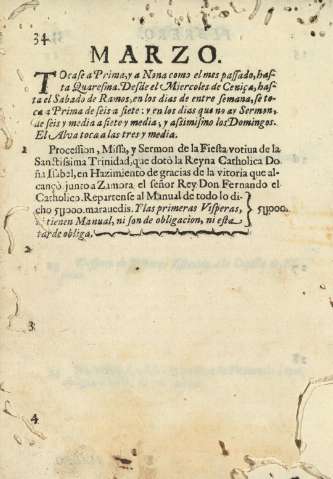 34
MARZO.
TOcase a Prima, y a Nona como el mes passado, has-
ta Quaresma. Desde el Miercoles de Ceniça, has-
ta el Sabado de Ramos, en los dias de entre semana, se to-
ca a Prima de seis a siete: y en los dias que ay Sermon,
de seis y media a siete y media, y assimismo los Domingos.
El Alva toca a las tres y media.
Procession, Missa, y Sermon de la Fiesta votiua de la
Sanctissima Trinidad, que dotó la Reyna Catholica Do
ña Isabel, en Hazimiento de gracias de la vitoria que al-
cançò junto a Zamora el señor Rey Don Fernando el
Catholico. Repartense al Manual de todo lo di-
cho 5U000. marauedis. I las primeras Visperas, 5U000.
tienen Manual, ni son de obligacion, ni esta
tarde obliga.
3
4